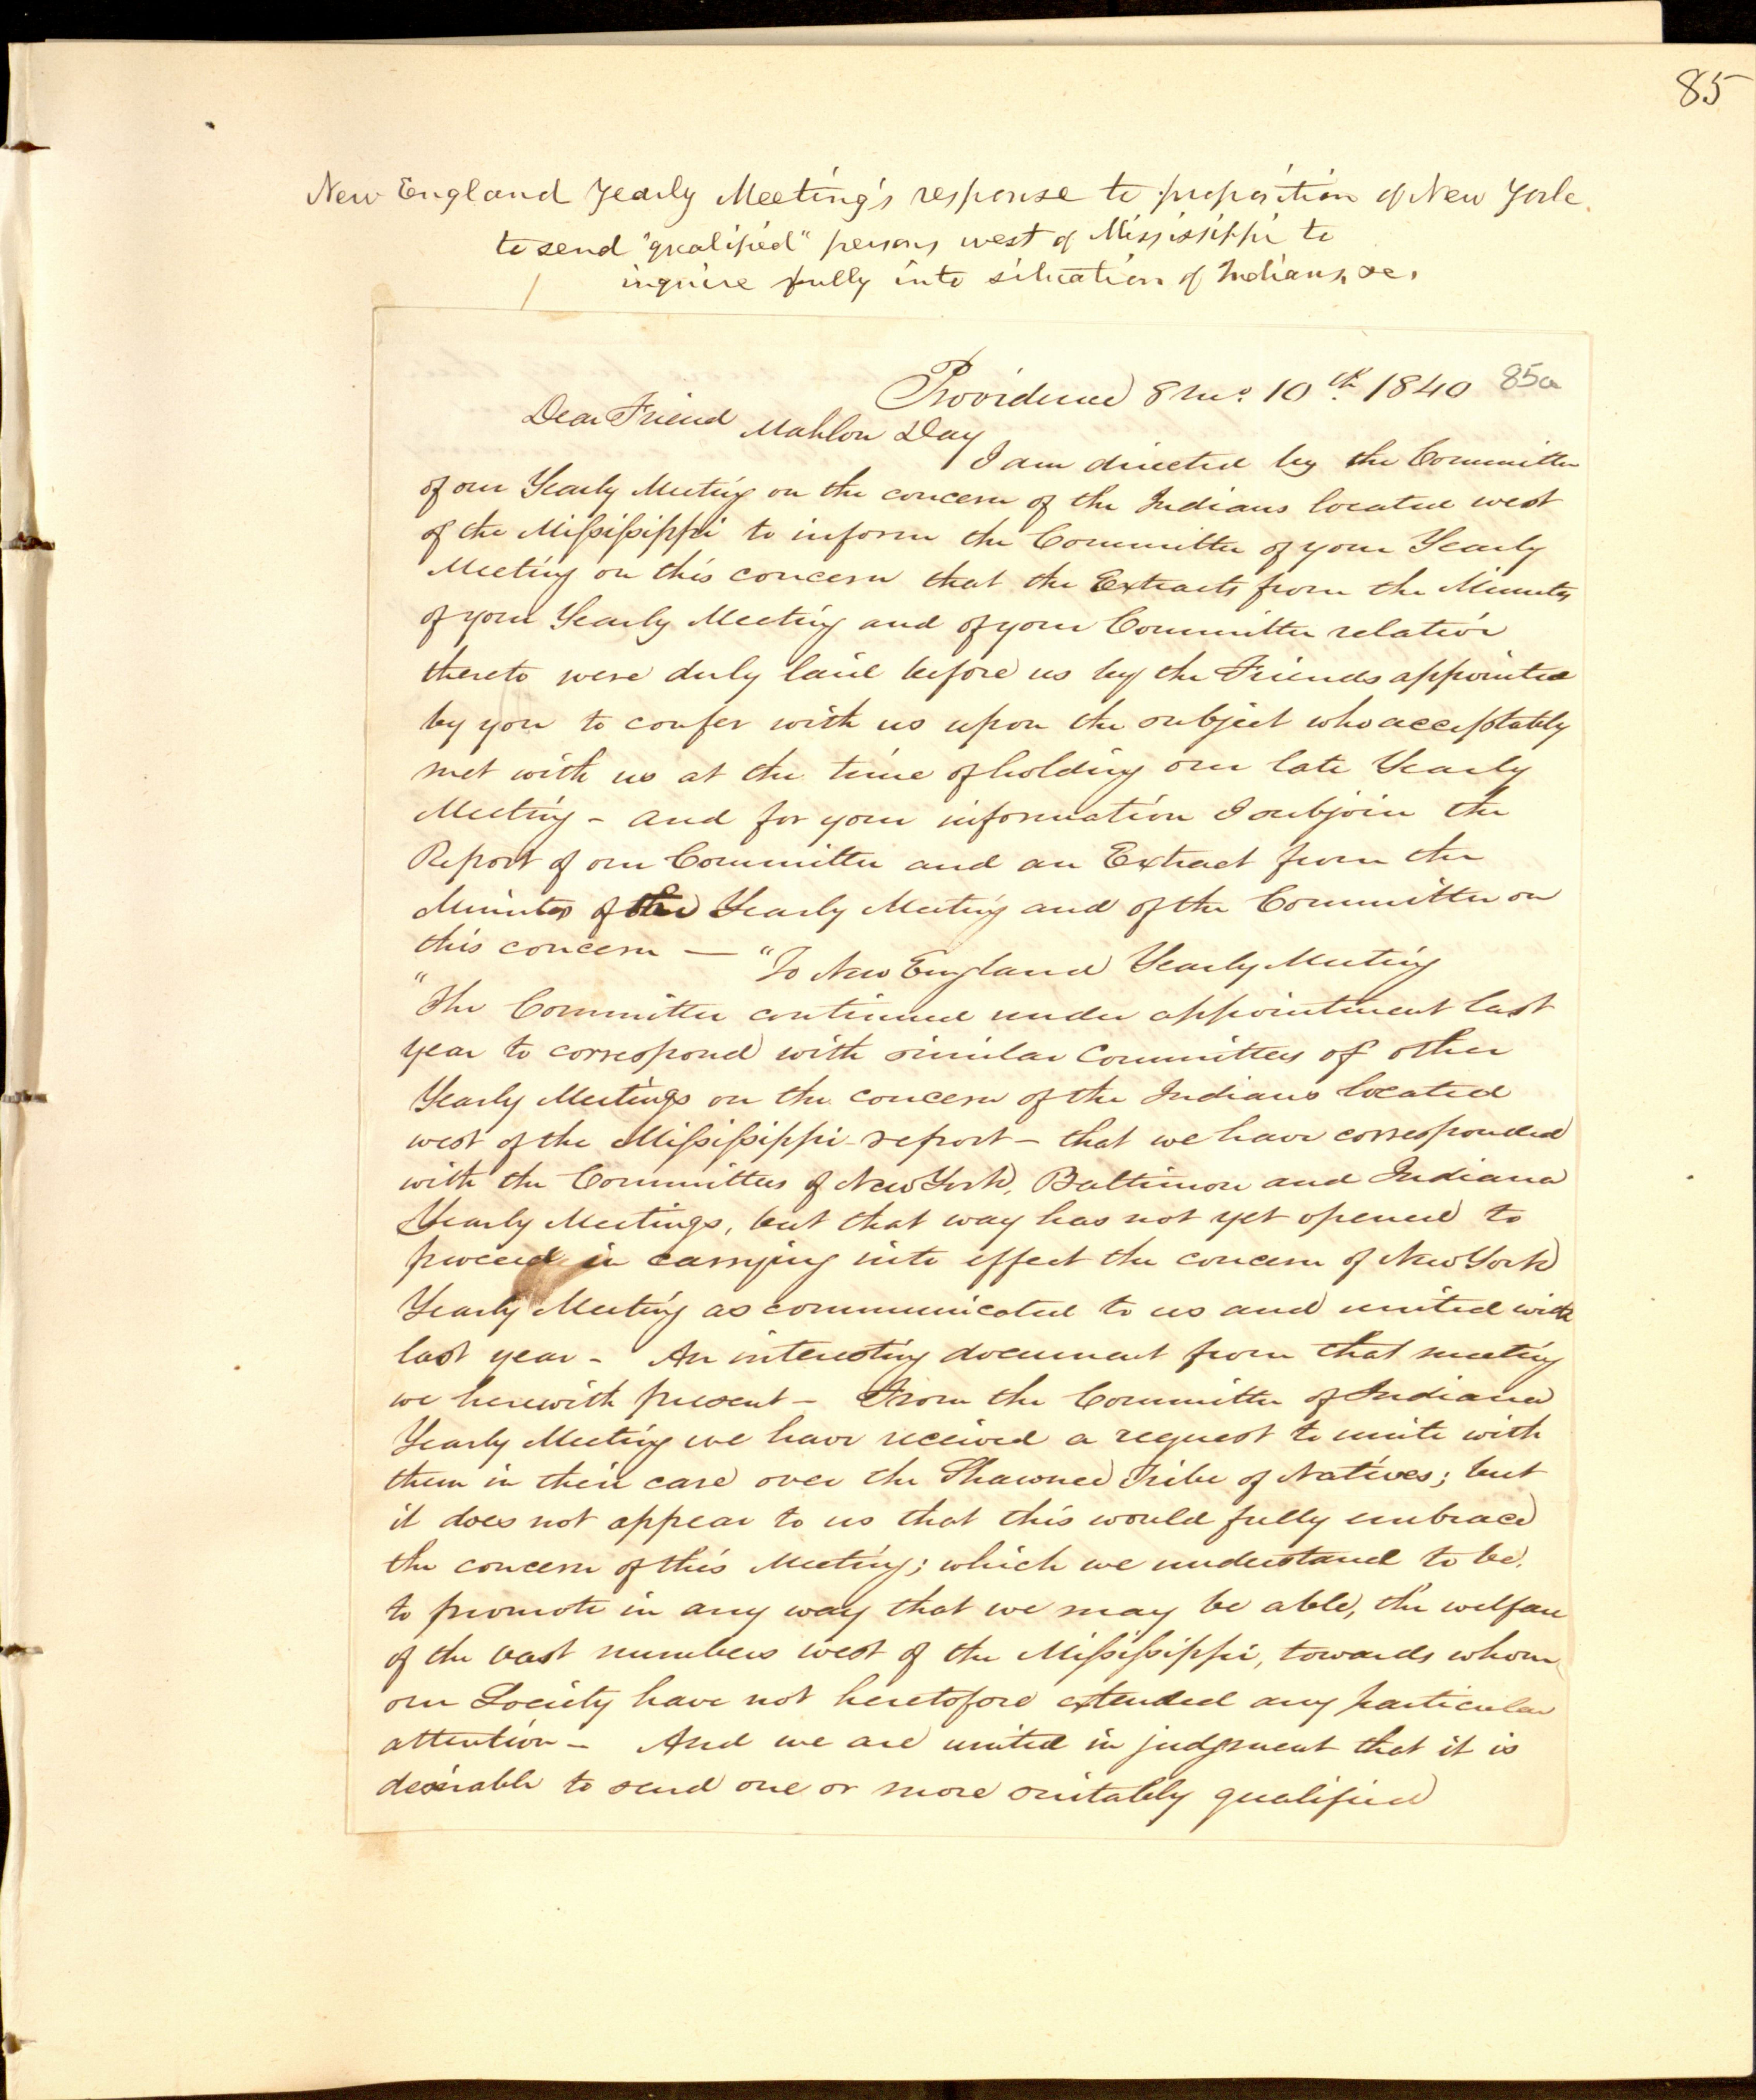 85
New England Yearly Meeting's response to proposition of New York
to send "qualified" persons west of Mississippi to
inquire fully into situation of Indians, &c.
Providence 8 mo. 10th. 1840
85a
Dear Friend Mahlon Day
I am directed by the Committee
of our Yearly Meeting on the concern of the Indians located west
of the Mississippi to inform the Committee of your Yearly
Meeting on this concern that the Extracts from the Minutes
of your Yearly Meeting and of your Committee relative
thereto were duly laid before us by the Friends appointed
by you to confer with us upon the subject who acceptably
met with us at the time of holding our late Yearly
Meeting - and for your information I subjoin the
Report of our Committee and an Extract from the
Minutes of the Yearly Meeting and of the Committee on
this concern — "To New England Yearly Meeting
"The Committee continued under appointment last
year to correspond with similar Committees of other
Yearly Meetings on the concern of the Indians located
west of the Mississippi - report - that we have corresponded
with the Committees of New York, Baltimore and Indiana
Yearly Meetings, but that way has not yet opened to
proceed in carrying into effect the concern of New York
Yearly Meeting as communicated to us and united with
last year - An interesting document from that meeting
we herewith present - From the Committee of Indiana
Yearly Meeting we have received a request to unite with
them in their care over the Shawnee Tribe of Natives; but
it does not appear to us that this would fully embrace
the concern of this Meeting; which we understand to be,
to promote in any way that we may be able, the welfare
of the vast numbers west of the Mississippi, towards whom
our Society have not heretofore extended any particular
attention - And we are united in judgment that it is
desirable to send one or more suitably qualified